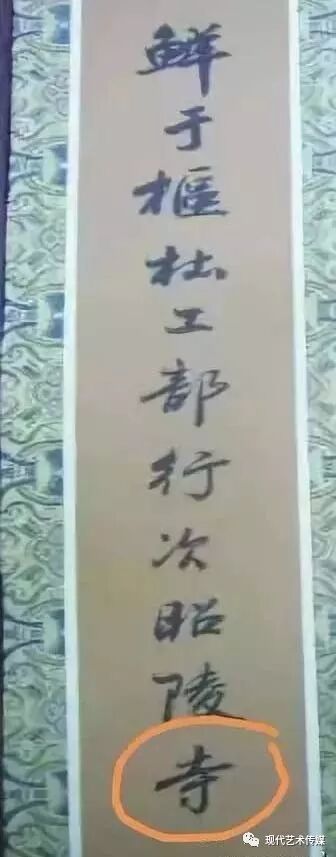 鲜于枢杜工部行次昭陵寺
现代艺术传媒